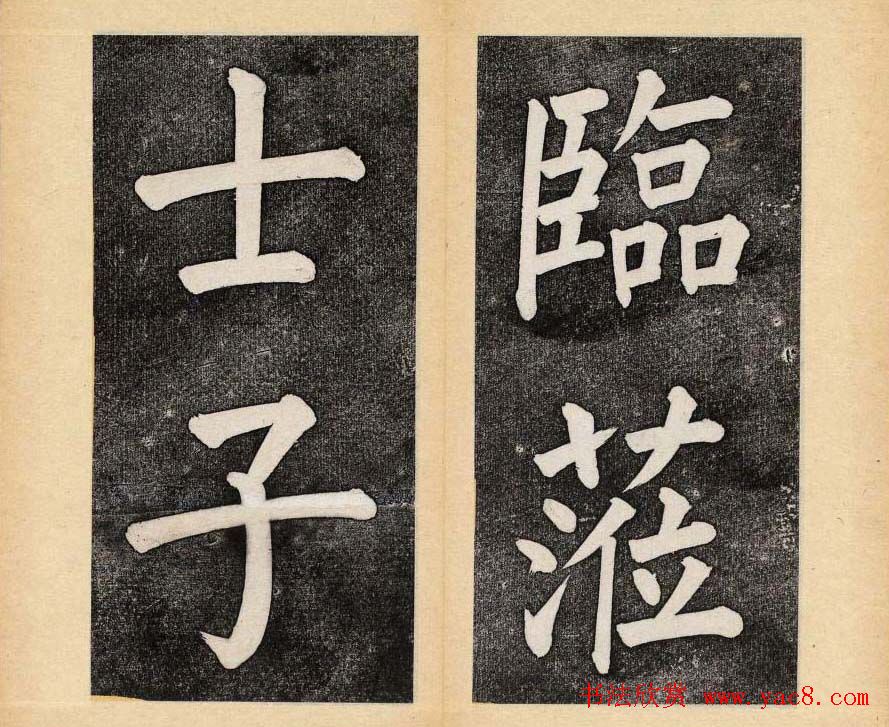 臨蒞
士子
书法欣赏 www.yac8.com